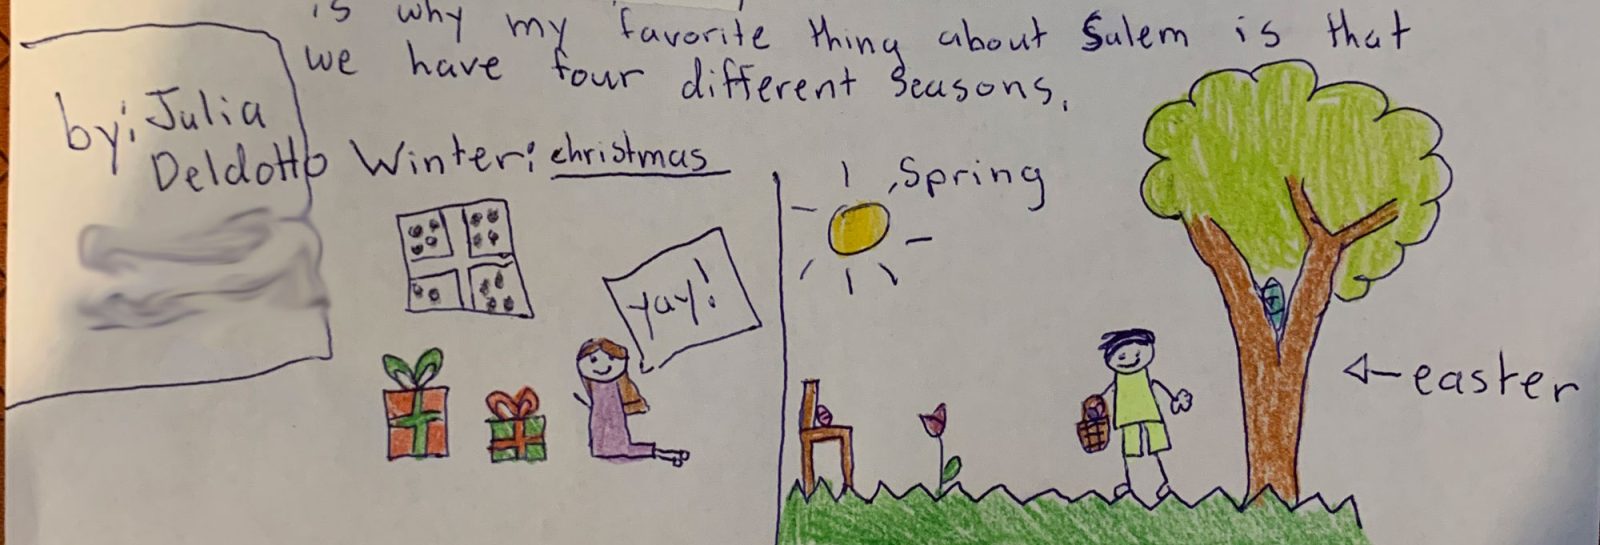 is why my favorite thing about Salem is that
we have four different seasons.
by: Julia
Deldotto
Winter: christmas
yay!
Spring
easter